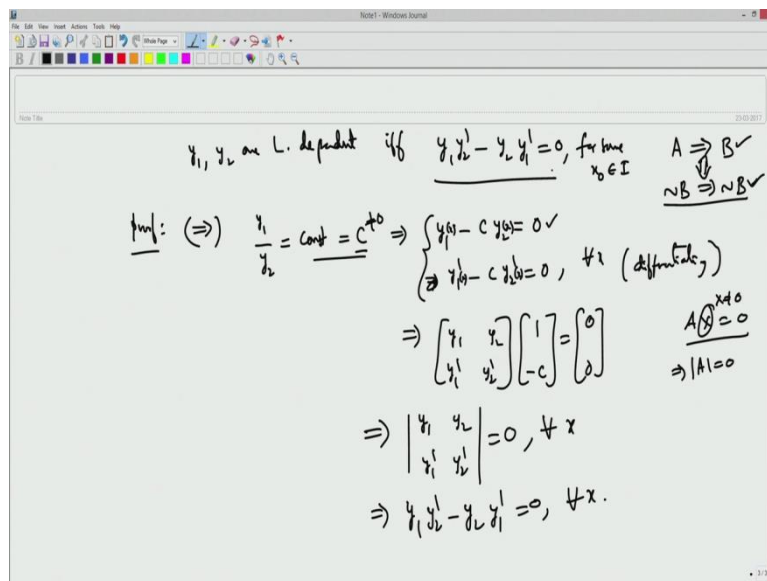 Note1 - Windows Journal
File Edit View Insert Actions Tools Help
Whole Page
B I
Note Title
23-03-2017
y₁, y₂ are L. dependent iff y₁y₂' - y₂y₁' = 0, for some x₀ ∈ I
A ⇒ B ✓
⇓
~B ⇒ ~B ✓
proof: (⇒) y₁/y₂ = const = C ≠0 ⇒ { y₁(x) - C y₂(x) = 0 ✓
⇒ y₁'(x) - C y₂'(x) = 0, ∀x (differentiating)
⇒ [y₁ y₂; y₁' y₂'] [1; -C] = [0; 0]
A x = 0 x≠0
⇒ |A| = 0
⇒ |y₁ y₂; y₁' y₂'| = 0, ∀x
⇒ y₁y₂' - y₂y₁' = 0, ∀x.
3/3